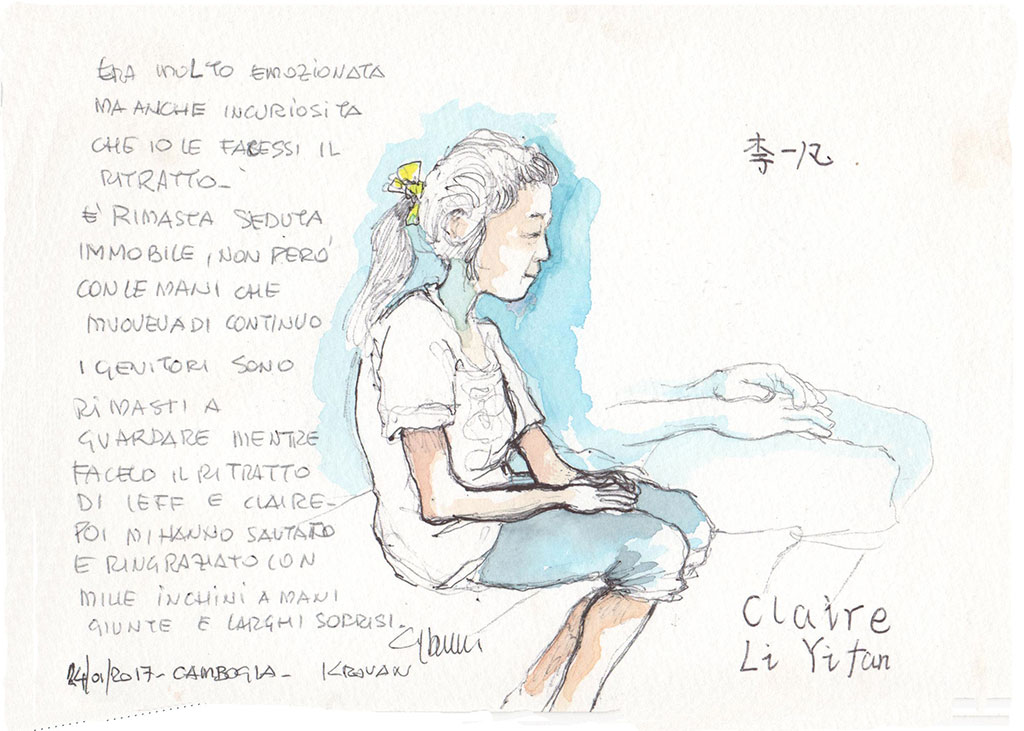 ERA MOLTO EMOZIONATA
MA ANCHE INCURIOSITA
CHE IO LE FACESSI IL
RITRATTO-
E' RIMASTA SEDUTA
IMMOBILE, NON PERO'
CON LE MANI CHE
MUOVEVA DI CONTINUO
I GENITORI SONO
RIMASTI A
GUARDARE MENTRE
FACEVO IL RITRATTO
DI IEFF E CLAIRE-
POI MI HANNO SALUTATO
E RINGRAZIATO CON
MILLE INCHINI A MANI
GIUNTE E LARGHI SORRISI.
24/01/2017- CAMBOGIA- KROVAN
李一凡
Claire
Li Yifan